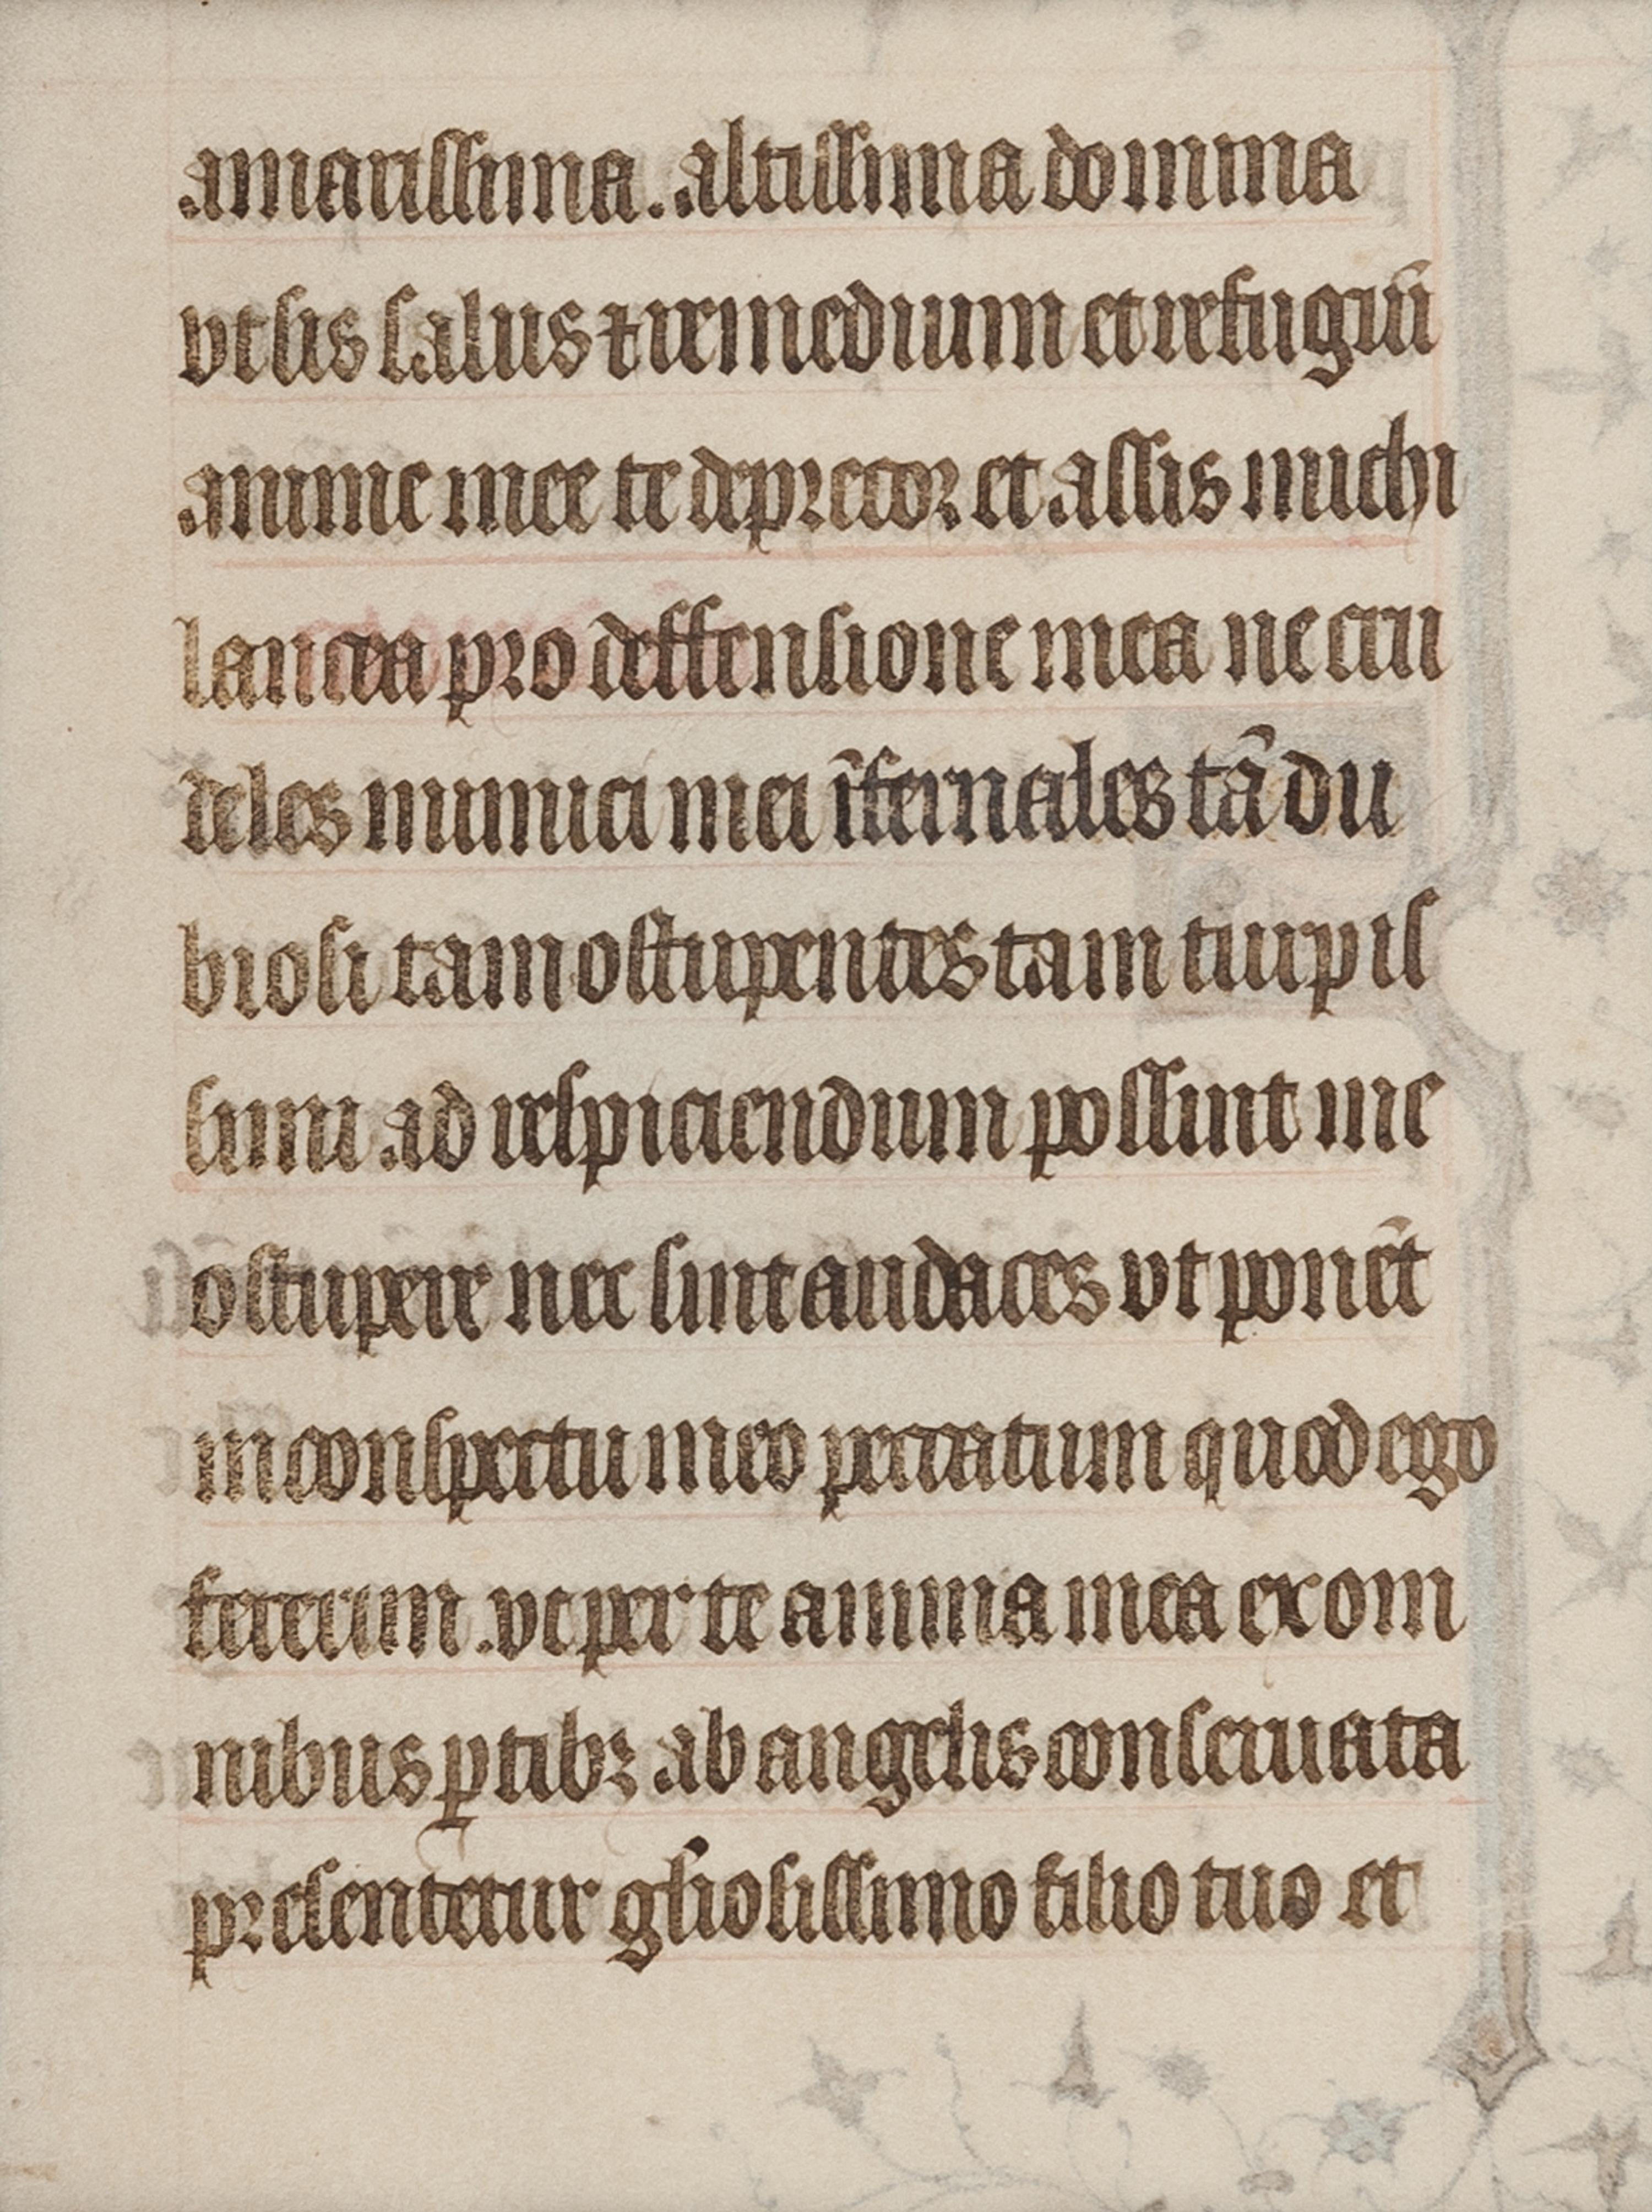 amarissima. altissima domina
vt sis salus ⁊ remedium et refugiū
anime mee te deprecor et assis michi
lancea pro deffensione mea ne cru
deles inimici mei īfernales tā du
biosi tam ostupentes tam turpis
simi ad respiciendum possint me
ostupere nec sint audaces vt ponēt
in conspectu meo peccatum quod ego
fecerim. vt per te anima mea ex om
nibus ꝑtibꝫ ab angelis conseruata
presentetur gl'iosissimo filio tuo et